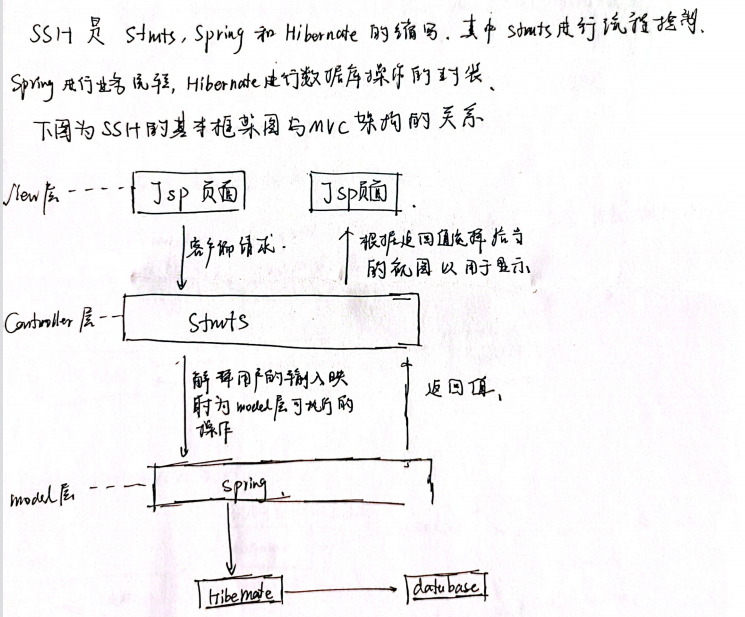 SSH是 Struts, Spring 和 Hibernate 的缩写. 其中 Struts进行流程控制.
Spring 进行业务流程, Hibernate进行数据库操作的封装.
下图为SSH的基本框架图与MVC架构的关系
View层
Jsp 页面
Jsp页面
客户端请求.
根据返回值选择恰当
的视图以用于显示
Controller层
Struts
解释用户的输入映
射为model层可执行的
操作
返回值.
model层
spring.
Hibernate
database